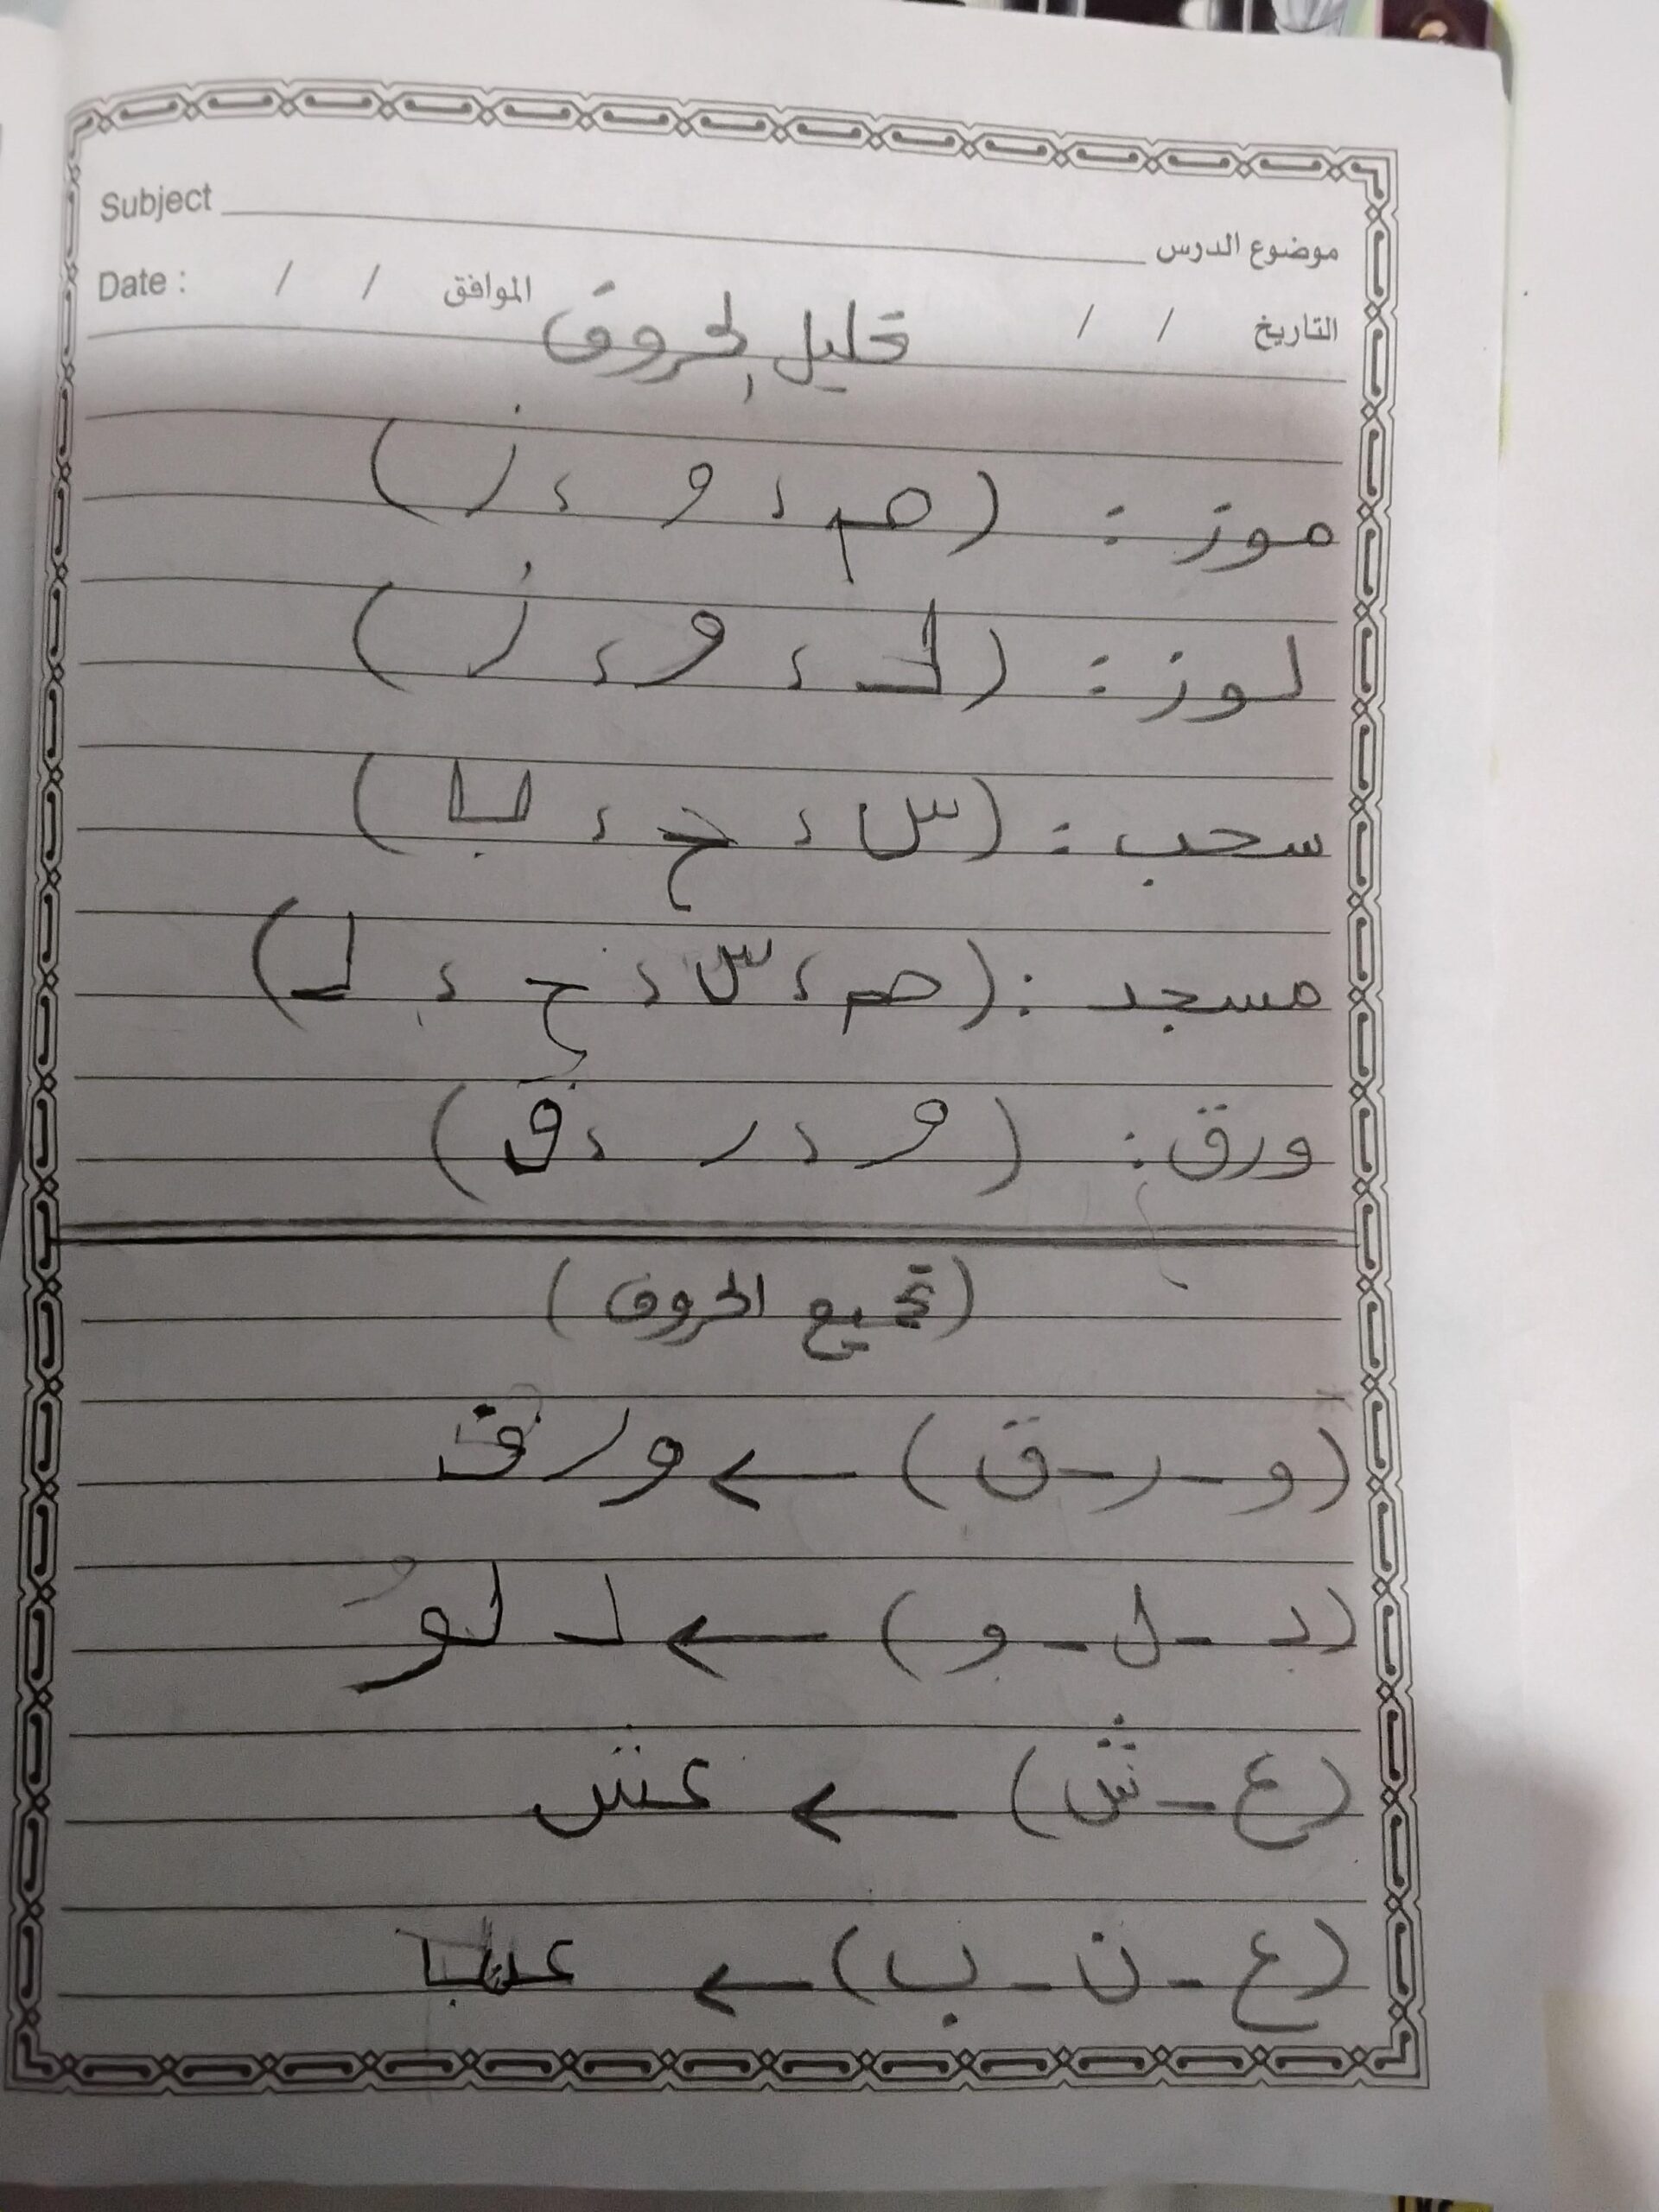 Subject موضوع الدرس
Date : / / الموافق / / التاريخ
تحليل الحروف
موز : (م ، و ، ز)
لوز : (ل ، و ، ز)
سحب : (س ، ح ، ب)
مسجد : (م ، س ، ج ، د)
ورق : (و ، ر ، ق)
(تجميع الحروف)
(و - ر - ق) ← ورق
(د - ل - و) ← دلو
(ع - ش) ← عش
(ع - ن - ب) ← عنب